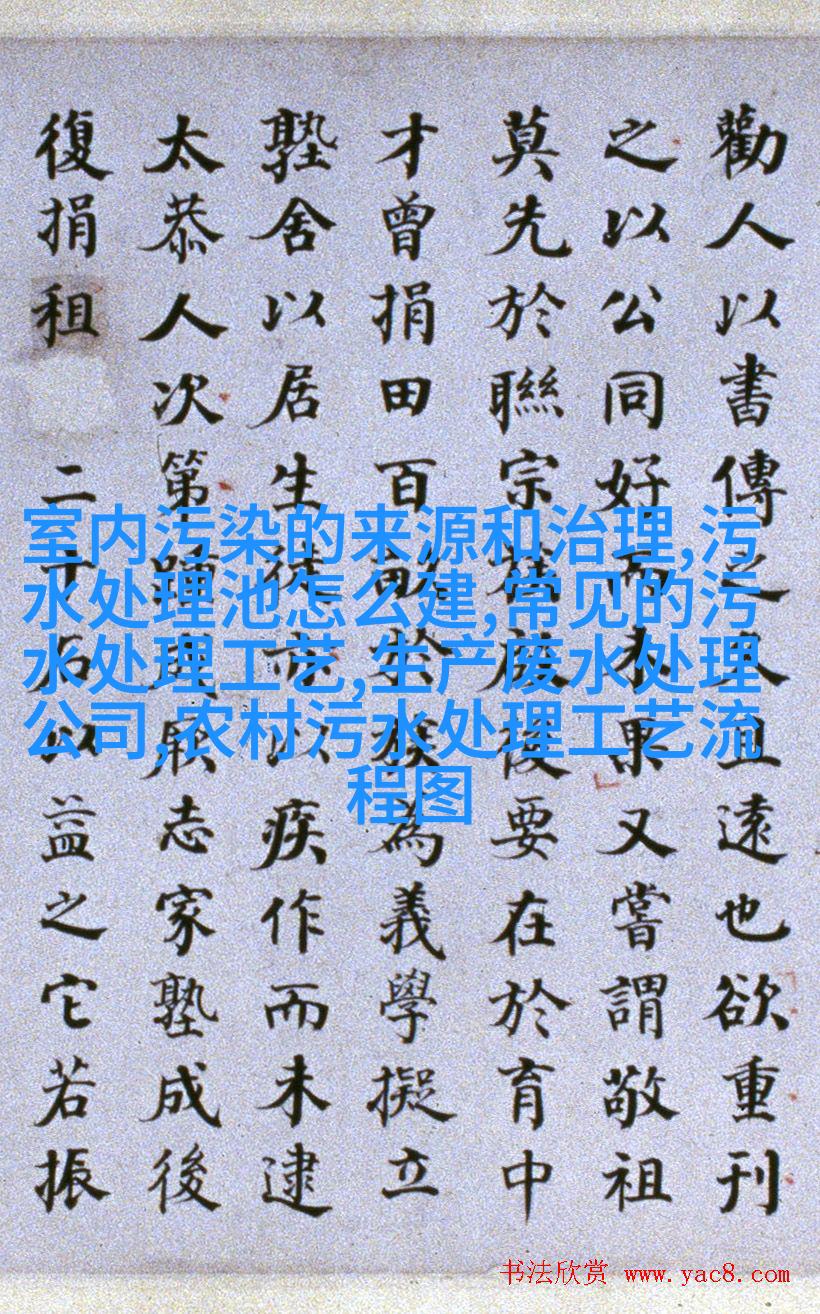 勸人以書傳之久且遠也欲重刊
之以公同好而未果又嘗謂敬祖
莫先於聯宗族後要在於育中
才曾捐田百畝於族為義學擬立
塾舍以居生徒亦以疾作而未逮
太恭人次第踵厥志家塾成後
復捐租二十石以益之它若振
室内污染的来源和治理,污
水处理池怎么建,常见的污
水处理工艺,生产废水处理
公司,农村污水处理工艺流
程图
书法欣赏 www.yac8.com